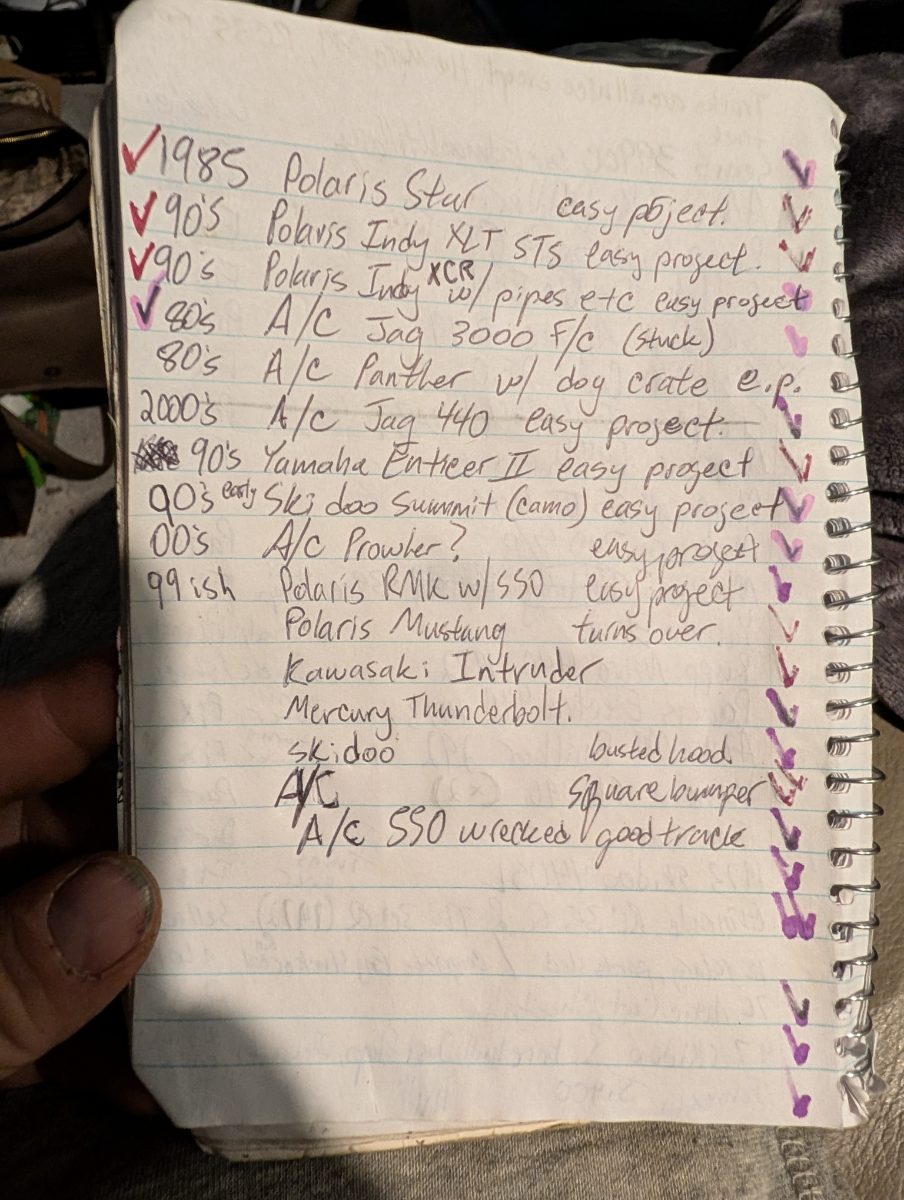 1985 Polaris Star easy pbject.
90's Polaris Indy XLT STS easy project.
90's Polaris Indy XCR w/ pipes etc easy project
80's A/C Jag 3000 F/C (stuck)
80's A/C Panther w/ dog crate e.p.
2000's A/C Jag 440 easy project.
90's Yamaha Enticer II easy project
90's early Skidoo Summit (camo) easy project
00's A/C Prowler? easy project
99ish Polaris RMK w/550 easy project
Polaris Mustang turns over.
Kawasaki Intruder
Mercury Thunderbolt.
skidoo busted hood
A/C Square bumper
A/C 550 wrecked good track